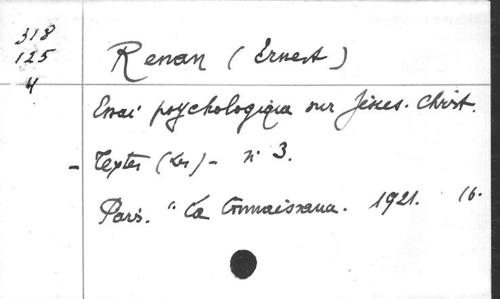 318
125
4
Renan (Ernest)
Essai psychologique sur Jésus-Christ.
- Textes (Les) - n° 3.
Paris. "La Connaissance. 1921. 16.